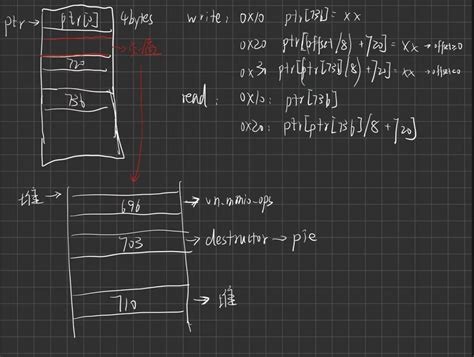 ptr
ptr[0]
4bytes
720
736
write: 0x10 ptr[736] = xx
0x20 ptr[offset/8) + 720] = xx → offset≥0
0x30 ptr[ptr[736]/8) + 720] = xx
read: 0x10: ptr[736]
0x20: ptr[ptr[736]/8 + 720]
堆
696 → vn.mmio_ops
703 → destructor → pie
710 → 堆